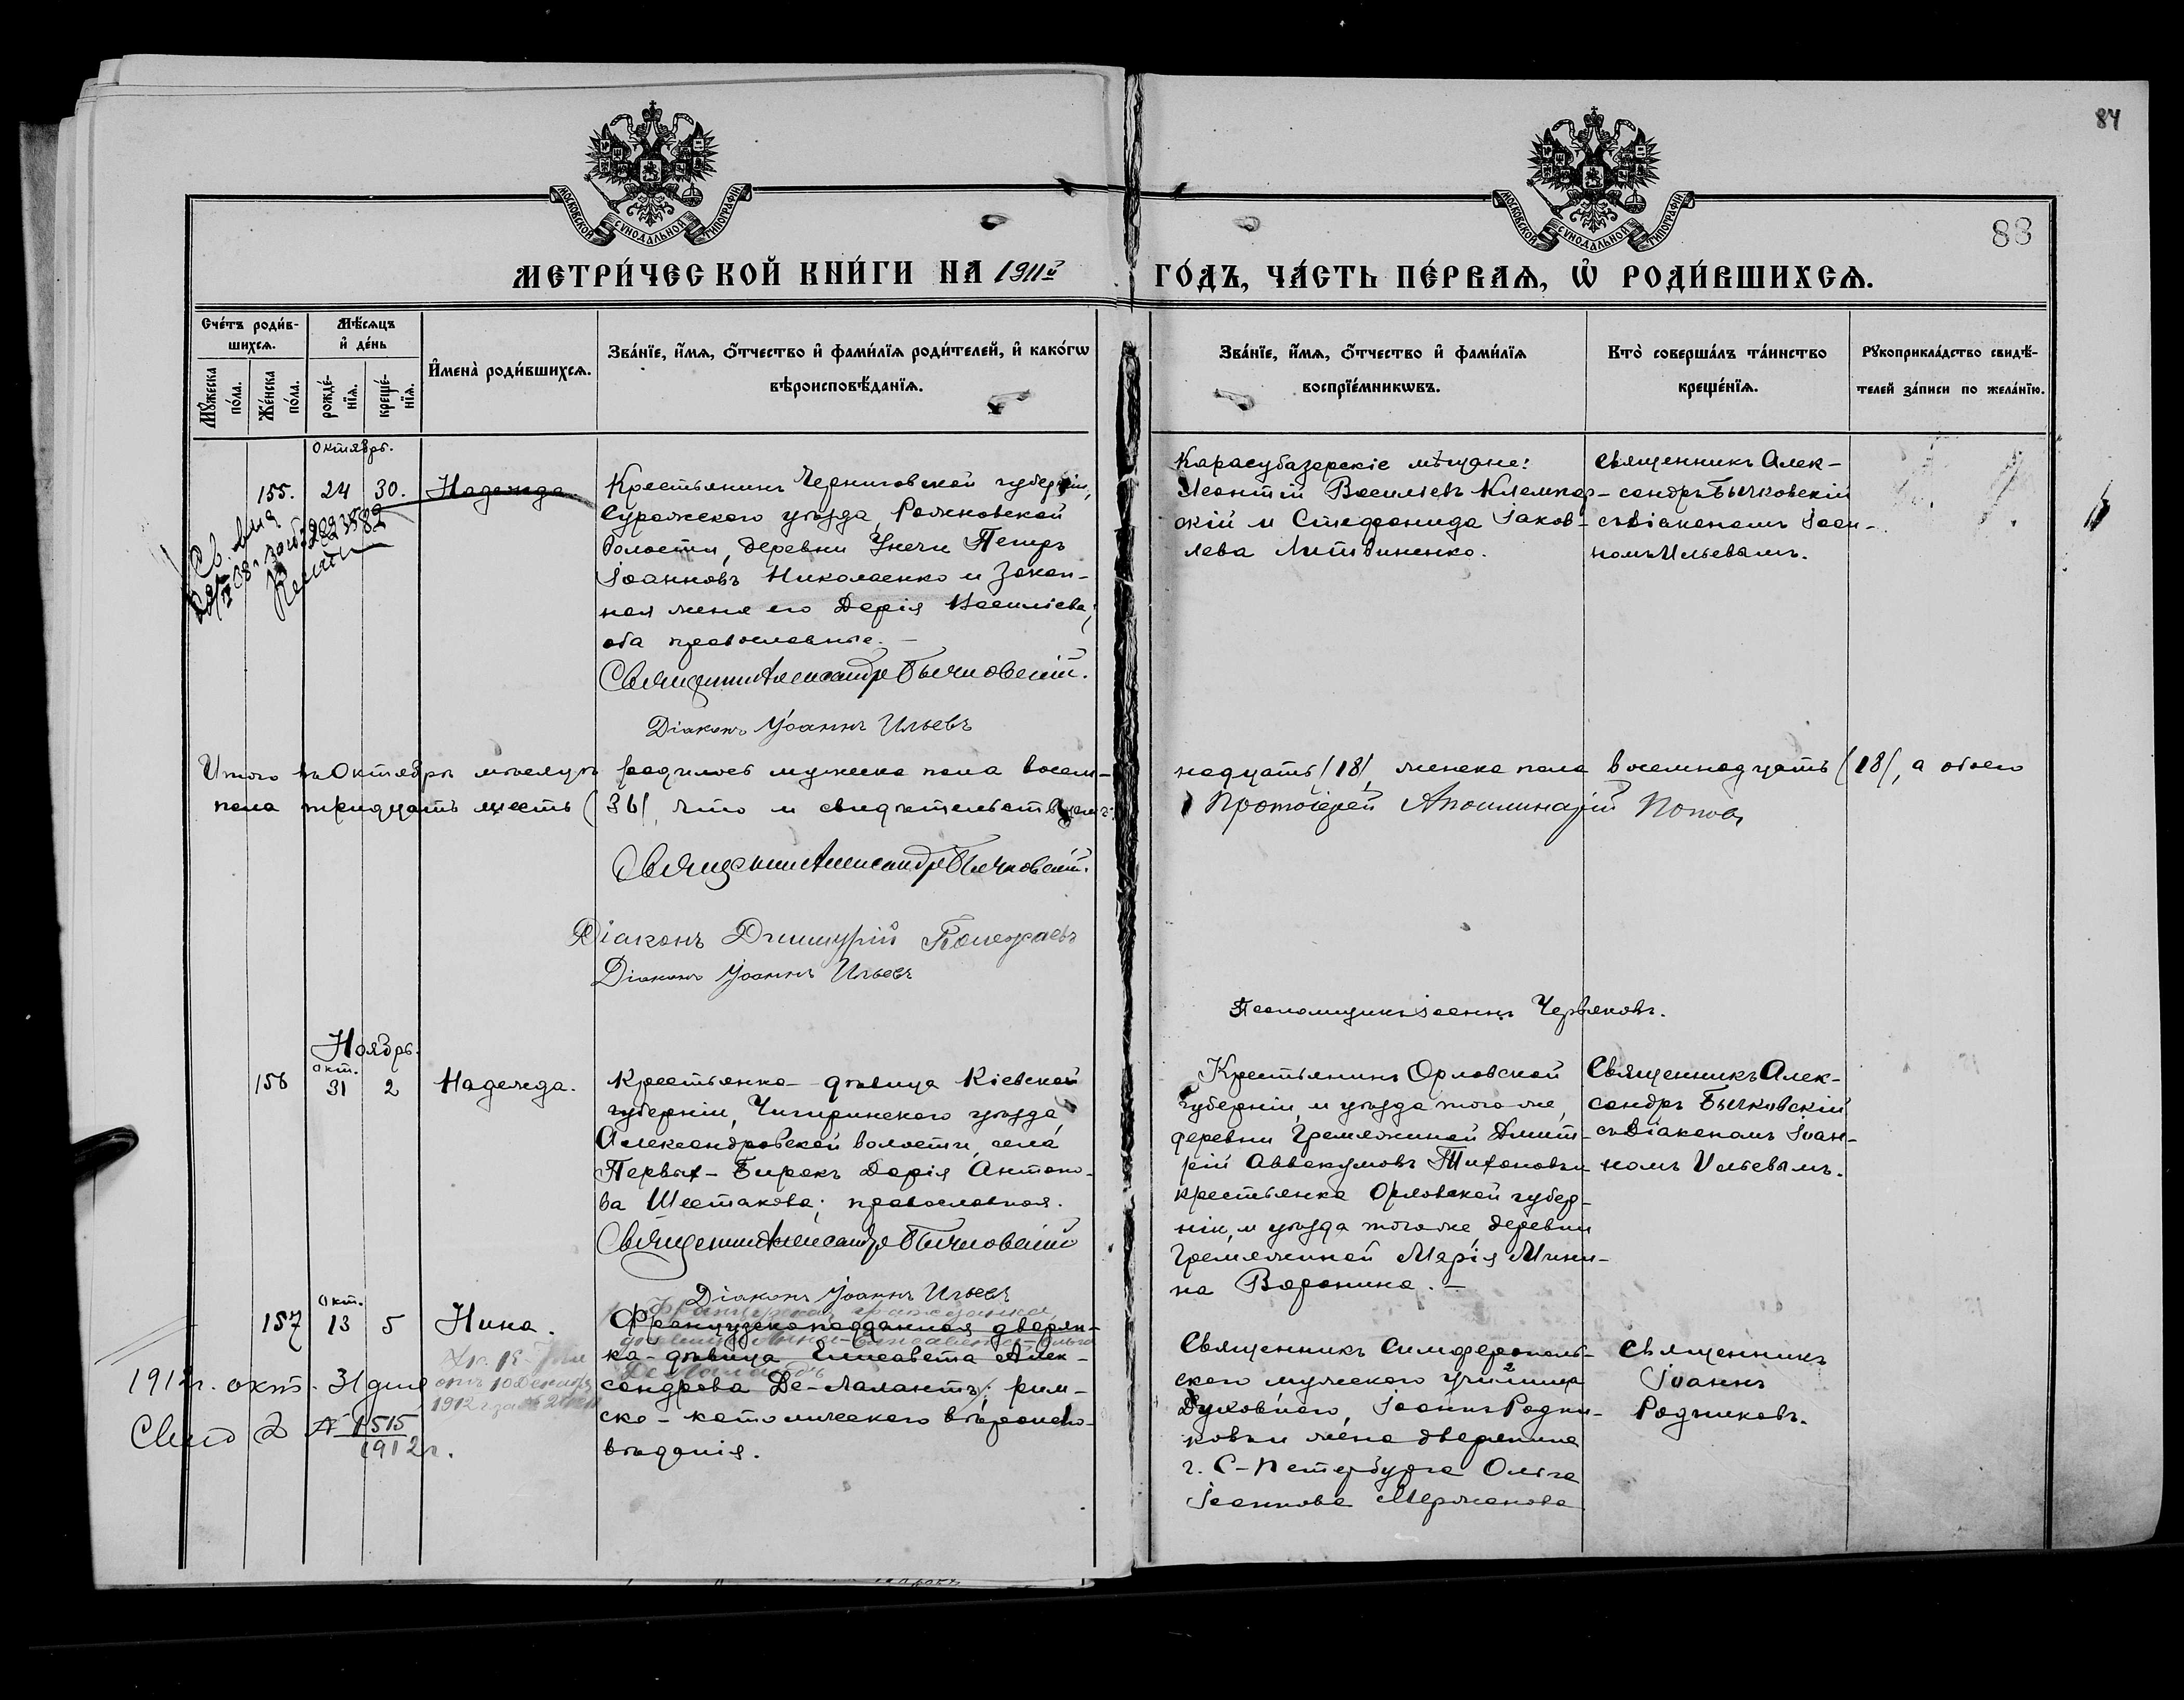 84
МОСКОВСКОЙ СѴНОДАЛЬНОЙ ТИПОГРАФІИ
МОСКОВСКОЙ СѴНОДАЛЬНОЙ ТИПОГРАФІИ
88
МЕТРИ́ЧЕСКОЙ КНИ́ГИ НА 1911й ГО́ДЪ, ЧА́СТЬ ПЕ́РВАѦ, Ѽ РОДИ́ВШИХСѦ.
Сче́тъ роди́в-
шихсѧ.
Мꙋ́жеска по́ла.
Же́нска по́ла.
Мѣ́сѧцъ
и҆ де́нь
рожде́-
нїѧ.
креще́-
нїѧ.
И҆мена̀ роди́вшихсѧ.
Зва́нїе, и҆́мѧ, ѻ҆́тчество и҆ фами́лїѧ роди́телей, и҆ како́гѡ
вѣроисповѣ́данїѧ.
Зва́нїе, и҆́мѧ, ѻ҆́тчество и҆ фами́лїѧ
воспрїе́мникѡвъ.
Кто̀ соверша́лъ та́инство
креще́нїѧ.
Рꙋкоприкла́дство свидѣ́-
телей за́писи по жела́нїю.
Октябрь.
155. 24 30. Надежда
Крестьянинъ Черниговской губерніи,
Суражского уѣзда, Рожновской
волости, деревни Унечи Петръ
Іоанновъ Николаенко и закон-
ная жена его Дарія Василіева;
оба православные. —
Священникъ Александръ Бычковскій.
Діаконъ Іоаннъ Ильевъ
Карасубазарскіе мѣщане:
Леонтій Василіевъ
скій и Стефанида Іаков-
лева Литвиненко.
Священникъ Алек-
сандръ Бычковскій
съ Діакономъ Іоан-
номъ Ильевымъ.
Итого въ Октябрѣ мѣсяцѣ родилось мужеска пола восем-
надцать (18), женска пола восемнадцать (18), а обоего
пола тридцать шесть (36), что и свидѣтельствуемъ:
Протоіерей Аполлинарій Поповъ
Священникъ Александръ Бычковскій.
Діаконъ Димитрій
Діаконъ Іоаннъ Ильевъ
Псаломщикъ Іоаннъ Червяковъ.
Ноябрь.
Окт.
156 31 2 Надежда.
Крестьянка-дѣвица Кіевской
губерніи, Чигиринского уѣзда,
Александровской волости, села
Первых-Бирокъ Дарія Антоно-
ва Шестакова; православная.
Священникъ Александръ Бычковскій
Діаконъ Іоаннъ Ильевъ
Крестьянинъ Орловской
губерніи, и уѣзда того же,
деревни Гремяжиной Димит-
рій Аввакумовъ Тихоновъ и
крестьянка Орловской губер-
ніи, и уѣзда того же, деревни
Гремяжиной Марія Мини-
на Воронина. —
Священникъ Алек-
сандръ Бычковскій
съ Діакономъ Іоан-
номъ Ильевымъ.
Окт.
157 13 5 Нина.
Французская гражданка
Французско-подданная дворян-
ка-дѣвица Елисавета Алек-
сандрова Де-Лалантъ; рим-
ско-католического вѣроиспо-
вѣданія.
от 10 Декабря
1912 г за №
1912 г. окт. 31 дня
№ 1515
1912 г.
Священникъ Симферополь-
ского мужеского училища
Духовного, Іоаннъ Родни-
ковъ и жена дворянина
г. С-Петербурга Ольга
Іоаннова Мержанова
Священникъ
Іоаннъ
Родниковъ.